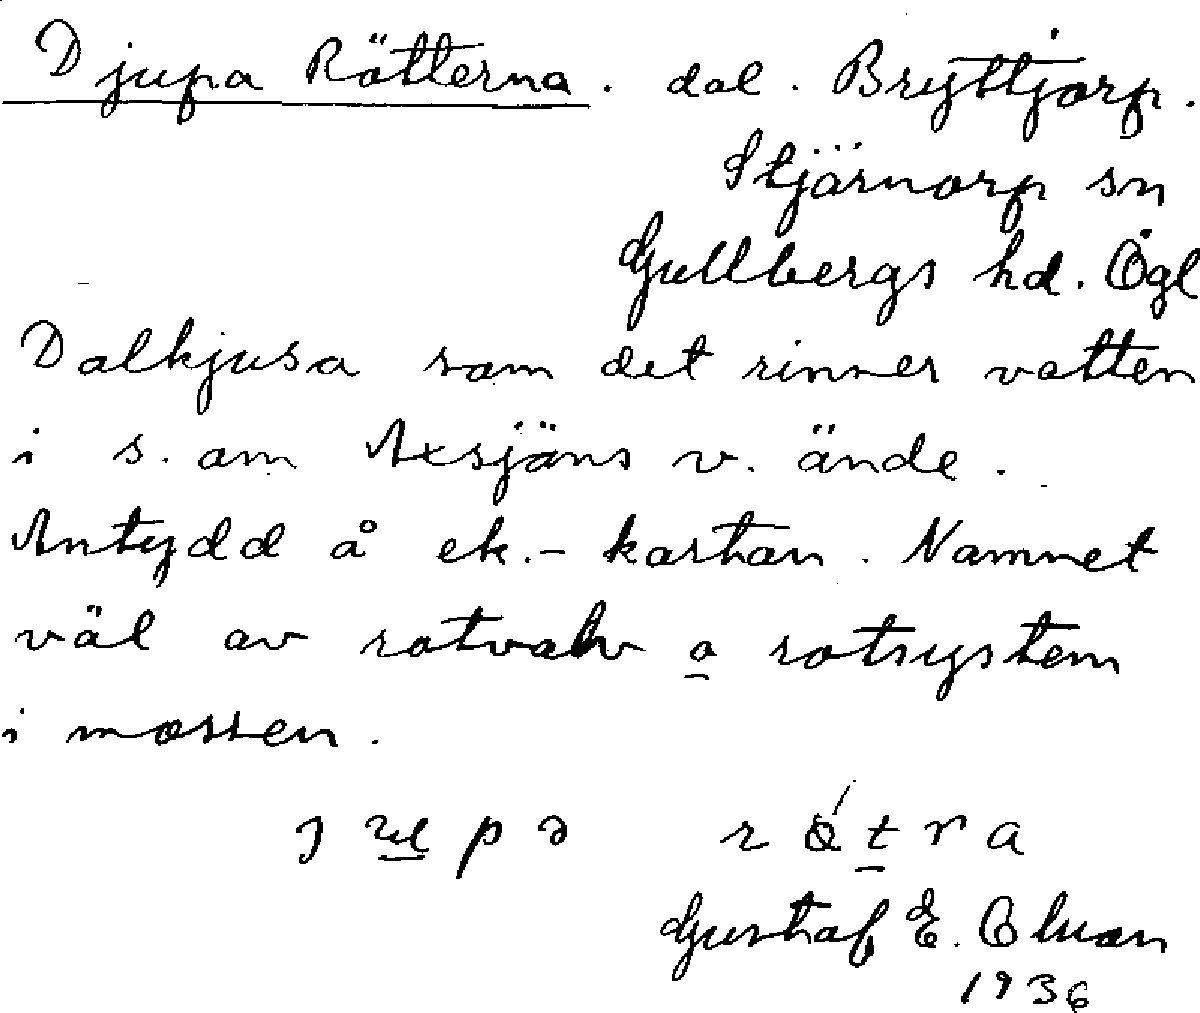 Djupa Rötterna. dal. Bryttjorp.
Stjärnorp sn
Gullbergs hd. Ögl
Dalkjusa som det rinner vatten
i s. om Axsjöns v. ände.
Antydd å ek.- kartan. Namnet
väl av rotvalv o rotsystem
i mossen.
rötra
Gustaf E. Olsson
1936